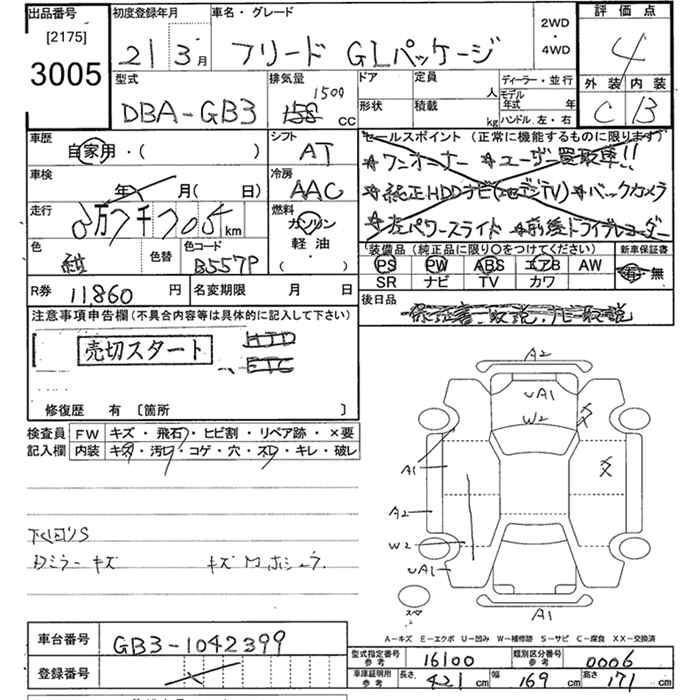 出品番号 初度登録年月 車名・グレード 2WD・4WD 評価点
[2175]
3005 21 3月 フリード GLパッケージ 4
型式 排気量 ドア 定員 人 ディーラー・並行 外装 内装
DBA-GB3 1500 cc 形状 積載 kg モデル年式 年 ハンドル 左・右 C B
車歴 シフト セールスポイント(正常に機能するものに限ります)
自家用・( ) AT ☆ワンオーナー ☆ユーザー買取車!!
車検 冷房 ☆純正HDDナビ(地デジTV) ☆バックカメラ
年 月( 日) AAC
走行 燃料 ☆左パワースライド ☆前後ドライブレコーダー
万 千 km ガソリン
色 色替 色コード 軽油 装備品(純正品に限り○をつけてください) 新車保証書
紺 B557P ・( ) PS PW ABS エアB AW 有・無
SR ナビ TV カワ
R券 11,860円 名変期限 月 日 後日品
注意事項申告欄(不具合内容等は具体的に記入して下さい) 保証書・取説・ナビ取説
売切スタート HDD
ETC
修復歴 有 [箇所 ]
検査員 FW キズ・飛石・ヒビ割・リペア跡・×要
記入欄 内装 キズ・汚れ・コゲ・穴・スレ・キレ・破レ
A2
UA1
W2
A1
A2
W2
UA1
A1
下回りS
キズ
A−キズ E−エクボ U−凹み W−補修跡 S−サビ C−腐食 XX−交換済
車台番号 GB3-1042399
登録番号
型式指定番号 参考 16100 類別区分番号 参考 0006
車庫証明用 参考 長さ 421cm 幅 169cm 高さ 171cm